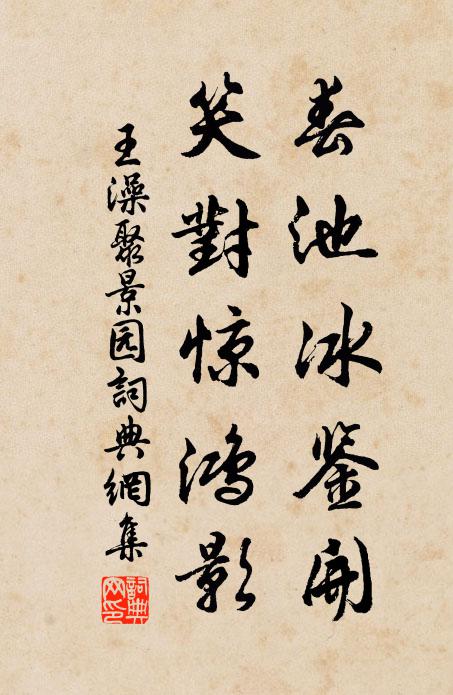 春池冰鉴开
笑對惊鸿影
王澡聚景园詞典網集
詞典网印